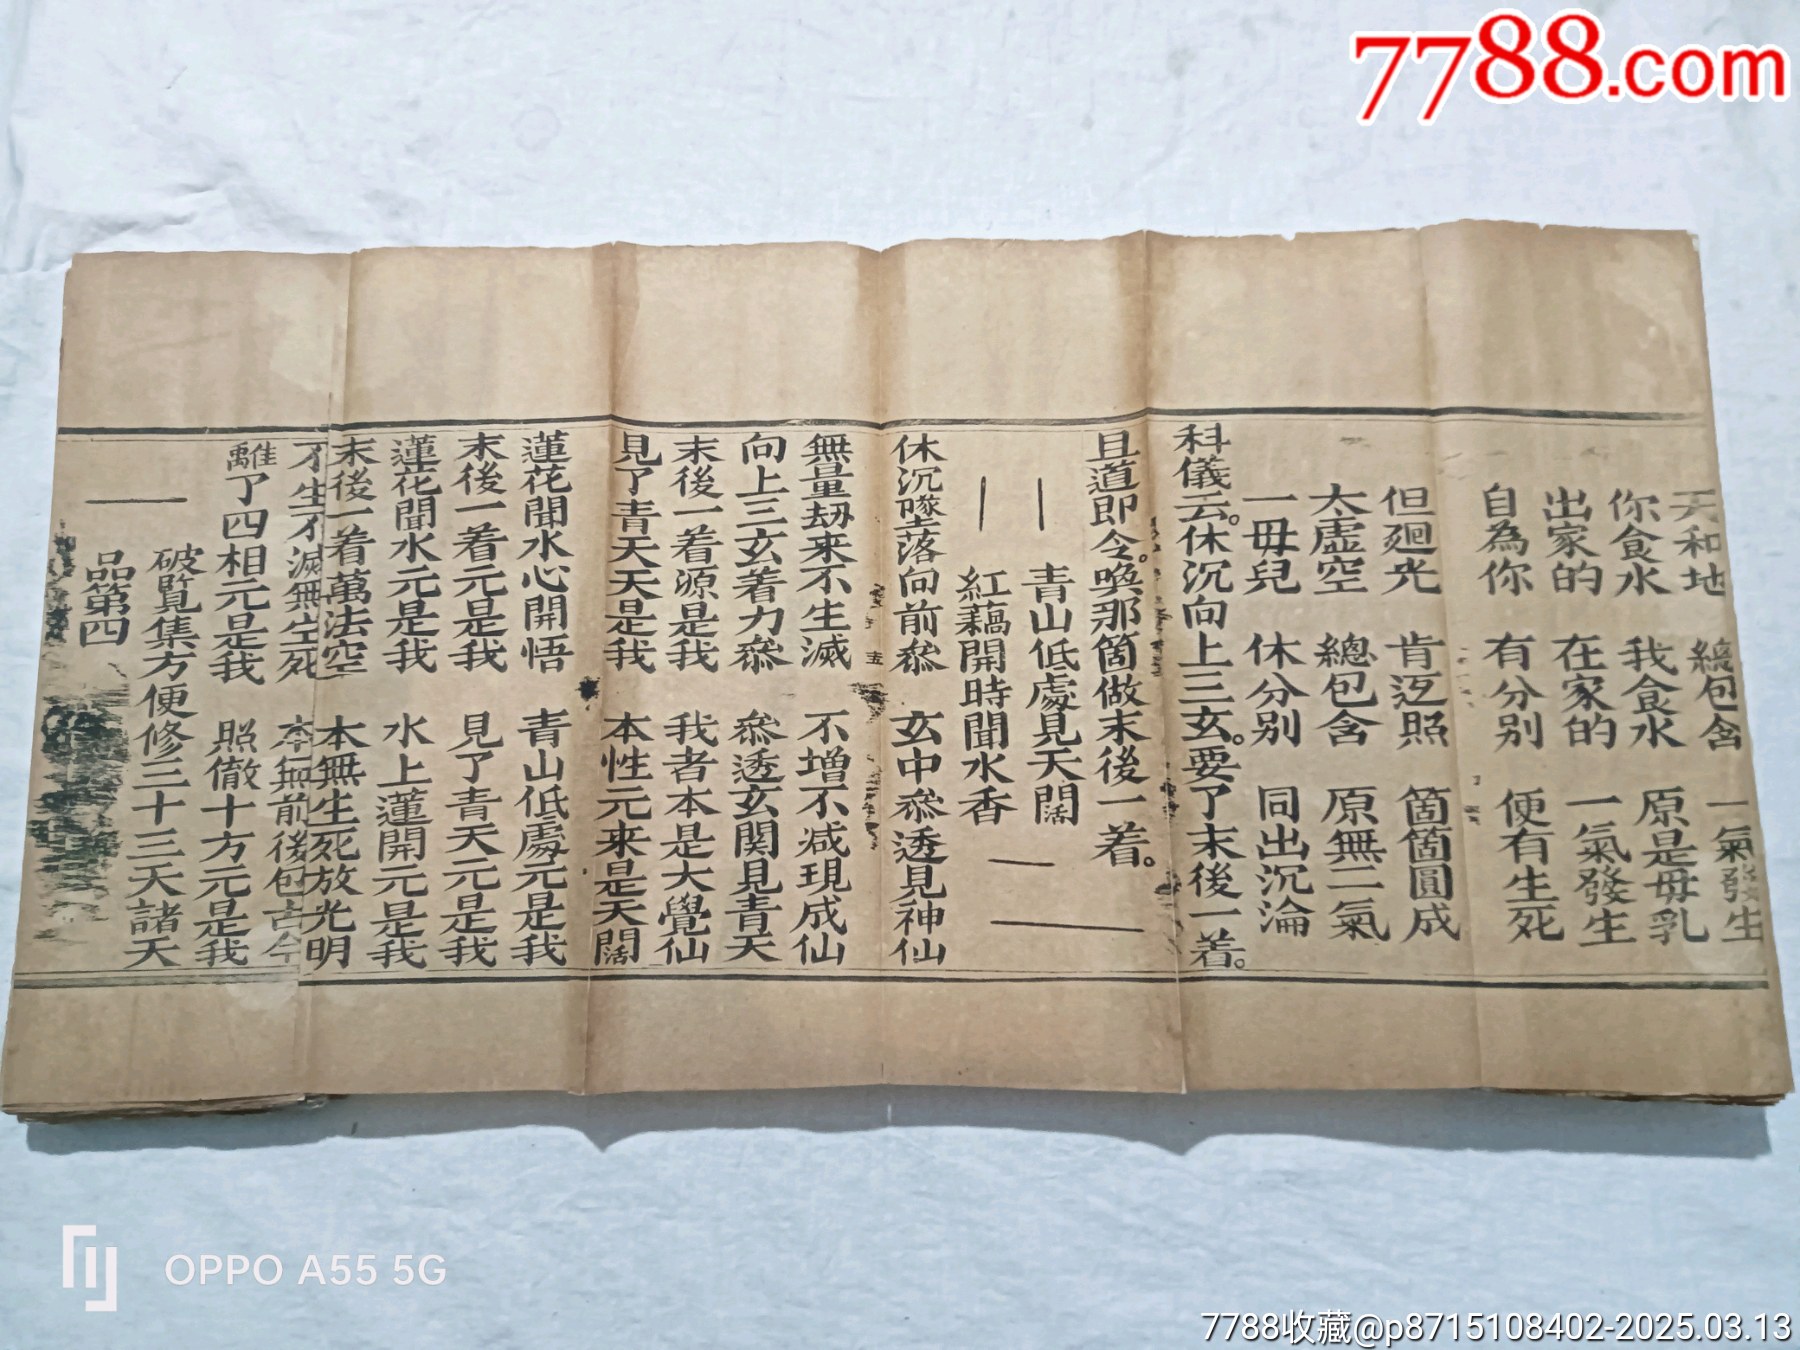 7788.com
天和地 總包含 一氣發生
你食水 我食水 原是毋乳
出家的 在家的 一氣發生
自為你 有分别 便有生死
但廻光 肯返照 箇箇圓成
太虛空 總包含 原無二氣
一毋兒 休分别 同出沉淪
科儀云。休沉向上三玄。要了末後一着。
且道即今。喚那箇做末後一着。
青山低處見天闊
紅藕開時聞水香
休沉墜落向前叅 玄中叅透見神仙
無量劫来不生滅 不增不减現成仙
向上三玄着力叅 叅透玄関見青天
末後一着源是我 我者本是大覺仙
見了青天天是我 本性元来是天闊
蓮花聞水心開悟 青山低處元是我
末後一着元是我 見了青天元是我
蓮花聞水元是我 水上蓮開元是我
末後一着萬法空 本無生死放光明
不生不滅無空死 本無前後包古今
離了四相元是我 照徹十方元是我
破覧集方便修三十三天諸天
品第四
OPPO A55 5G
7788收藏@p8715108402-2025.03.13